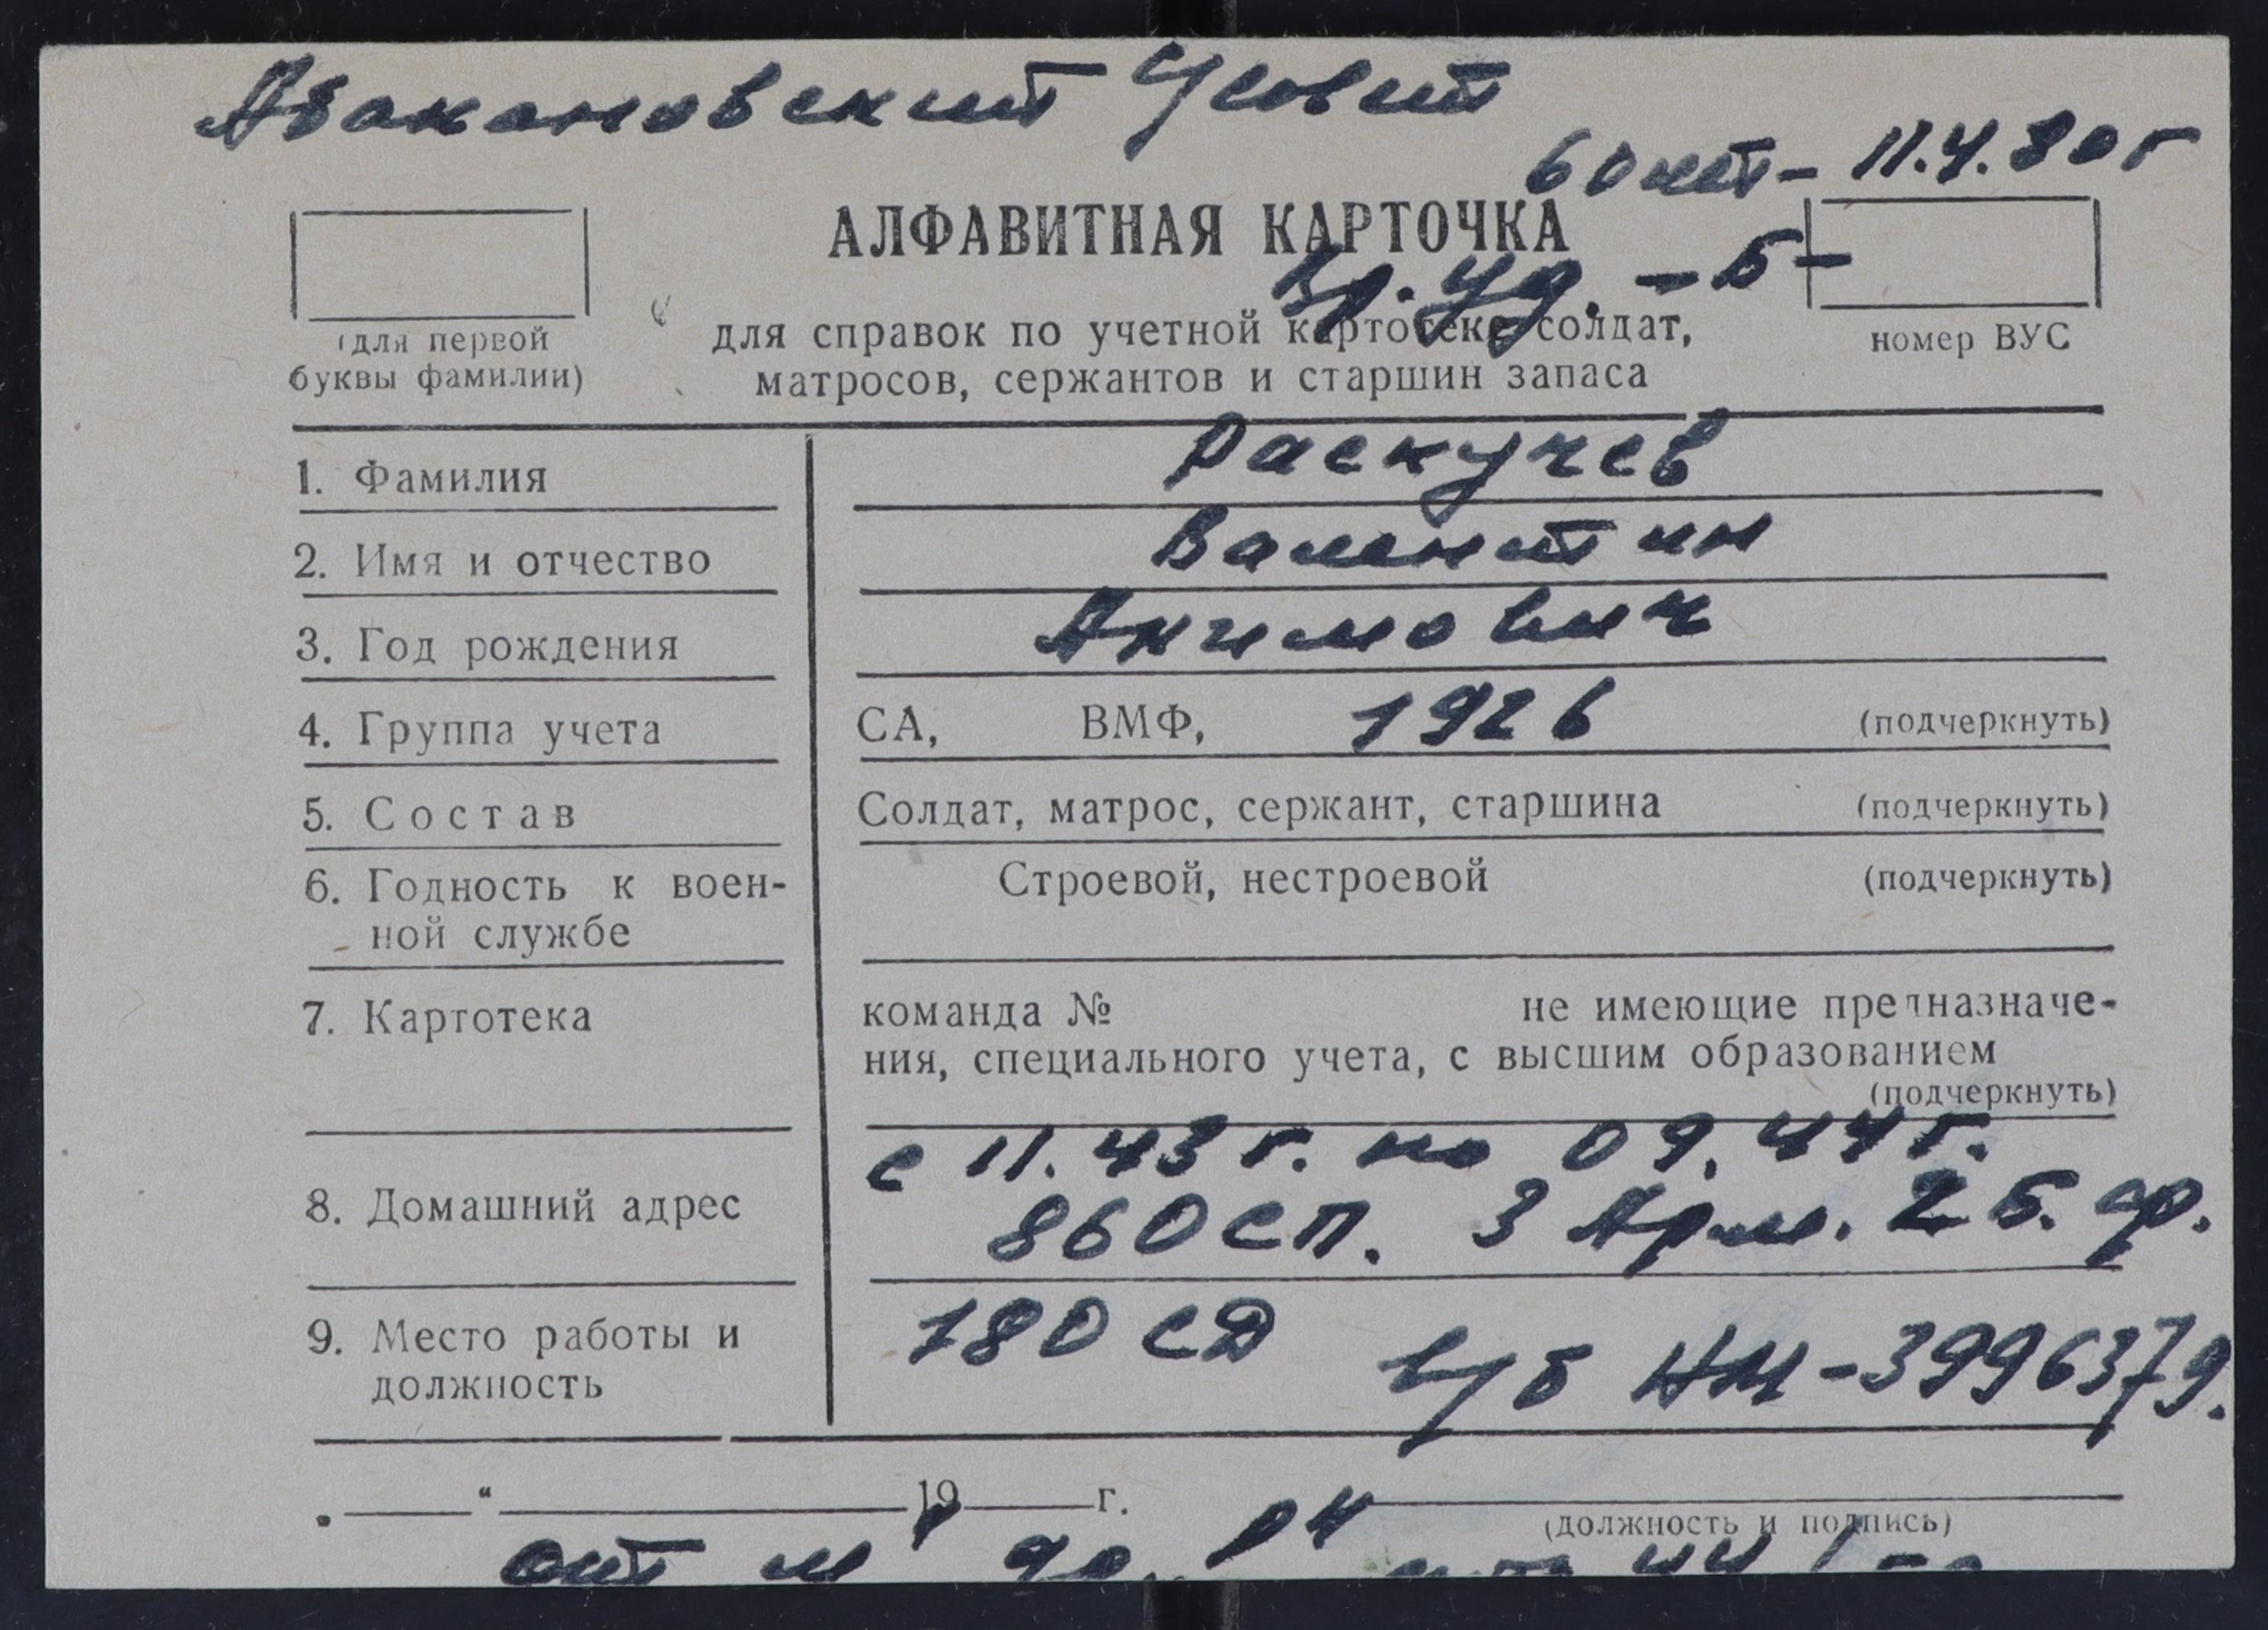 Абакановский
60 лет - 11.4.80г
АЛФАВИТНАЯ КАРТОЧКА
- Б -
(для первой буквы фамилии)
для справок по учетной картотеке солдат,
матросов, сержантов и старшин запаса
номер ВУС
1. Фамилия Раскучев
2. Имя и отчество Валентин
3. Год рождения Акимович
4. Группа учета СА, ВМФ, 1926 (подчеркнуть)
5. Состав Солдат, матрос, сержант, старшина (подчеркнуть)
6. Годность к воен- Строевой, нестроевой (подчеркнуть)
ной службе
7. Картотека команда № не имеющие предназначе-
ния, специального учета, с высшим образованием
(подчеркнуть)
с 11.43 г. по 09.44 г.
8. Домашний адрес 860 сп. 3 Арм. 2 Б. ф.
9. Место работы и 180 СД в/б НМ-3996379.
должность
„ “ 19 г.
(должность и подпись)